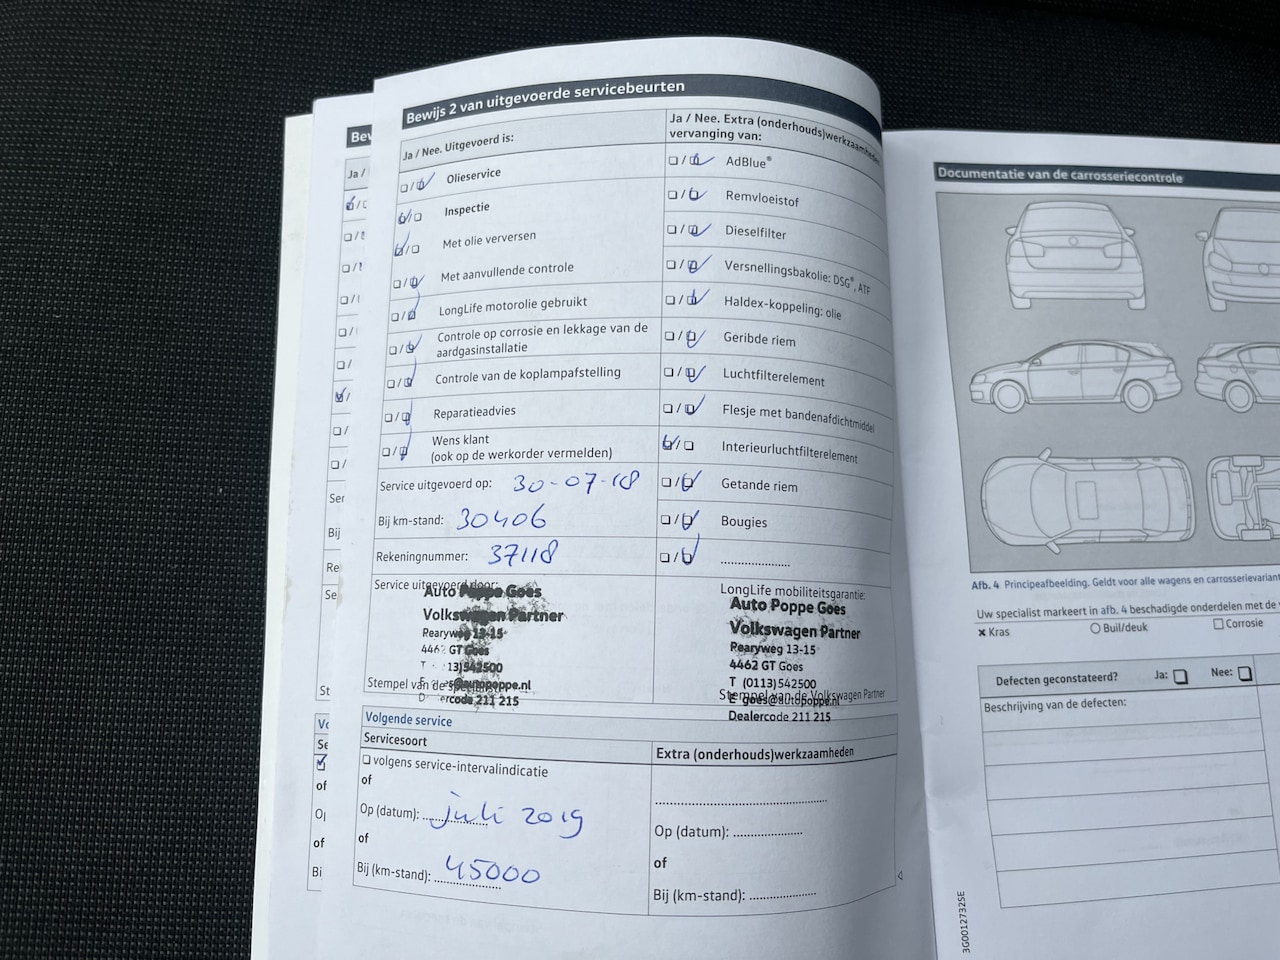 Bewijs 2 van uitgevoerde servicebeurten
Ja / Nee. Uitgevoerd is:
Olieservice
Inspectie
Met olie verversen
Met aanvullende controle
LongLife motorolie gebruikt
Controle op corrosie en lekkage van de
aardgasinstallatie
Controle van de koplampafstelling
Reparatieadvies
Wens klant
(ook op de werkorder vermelden)
Service uitgevoerd op: 30-07-18
Bij km-stand: 30406
Rekeningnummer: 37118
Service uitgevoerd door:
Auto Poppe Goes
Volkswagen Partner
Pearyweg 13-15
446 GT Goes
T 13)542500
s@autopoppe.nl
Stempel van de specialist
ercode 211 215
Ja / Nee. Extra (onderhouds)werkzaamheden
vervanging van:
AdBlue®
Remvloeistof
Dieselfilter
Versnellingsbakolie: DSG®, ATF
Haldex-koppeling: olie
Geribde riem
Luchtfilterelement
Flesje met bandenafdichtmiddel
Interieurluchtfilterelement
Getande riem
Bougies
LongLife mobiliteitsgarantie:
Auto Poppe Goes
Volkswagen Partner
Pearyweg 13-15
4462 GT Goes
T (0113)542500
Stempel van de Volkswagen Partner
E goes@autopoppe.nl
Dealercode 211 215
Volgende service
Servicesoort
volgens service-intervalindicatie
of
Op (datum): juli 2019
of
Bij (km-stand): 45000
Extra (onderhouds)werkzaamheden
Op (datum):
of
Bij (km-stand):
Bew
Ja /
Ser
Bij
Re
Se
St
Vo
Se
of
Op
of
Bi
Documentatie van de carrosseriecontrole
Afb. 4 Principeafbeelding. Geldt voor alle wagens en carrosserievariant
Uw specialist markeert in afb. 4 beschadigde onderdelen met de
× Kras Buil/deuk Corrosie
Defecten geconstateerd? Ja: Nee:
Beschrijving van de defecten:
3G0012732SE